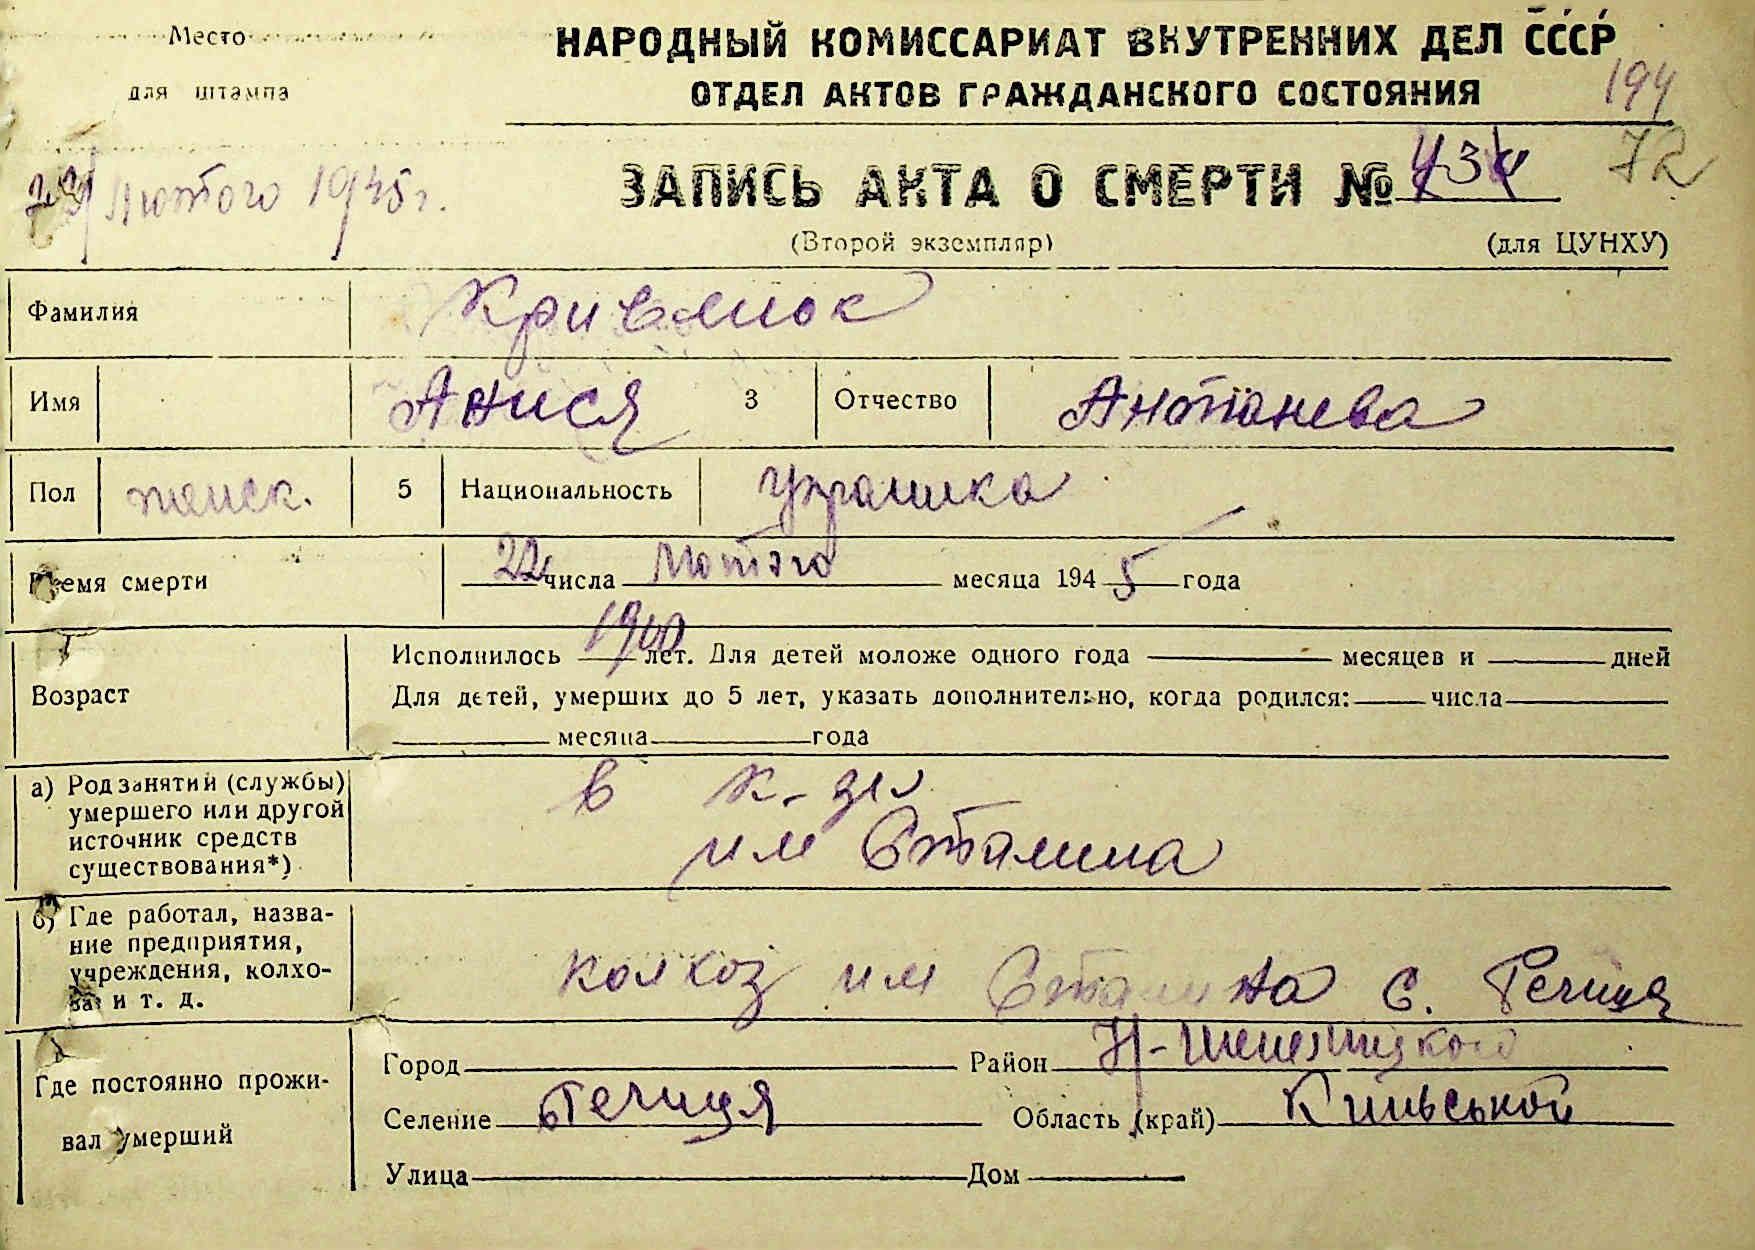 Место
для штампа
НАРОДНЫЙ КОМИССАРИАТ ВНУТРЕННИХ ДЕЛ СССР
ОТДЕЛ АКТОВ ГРАЖДАНСКОГО СОСТОЯНИЯ
194
72
лютого 1945 г.
ЗАПИСЬ АКТА О СМЕРТИ №
(Второй экземпляр) (для ЦУНХУ)
Фамилия
Имя Анися 3 Отчество
Пол 5 Национальность
Время смерти 22 числа лютого месяца 194 5 года
Исполнилось 1900 лет. Для детей моложе одного года месяцев и дней
Возраст Для детей, умерших до 5 лет, указать дополнительно, когда родился: числа
месяца года
а) Род занятий (службы) умершего или другой источник средств существования*)
в к-зі
им Сталина
б) Где работал, название предприятия, учреждения, колхоза и т. д.
колхоз им Сталина с. Речиця
Где постоянно проживал умерший
Город Район Н-Шепелицкого
Селение Речиця Область (край) Київської
Улица Дом